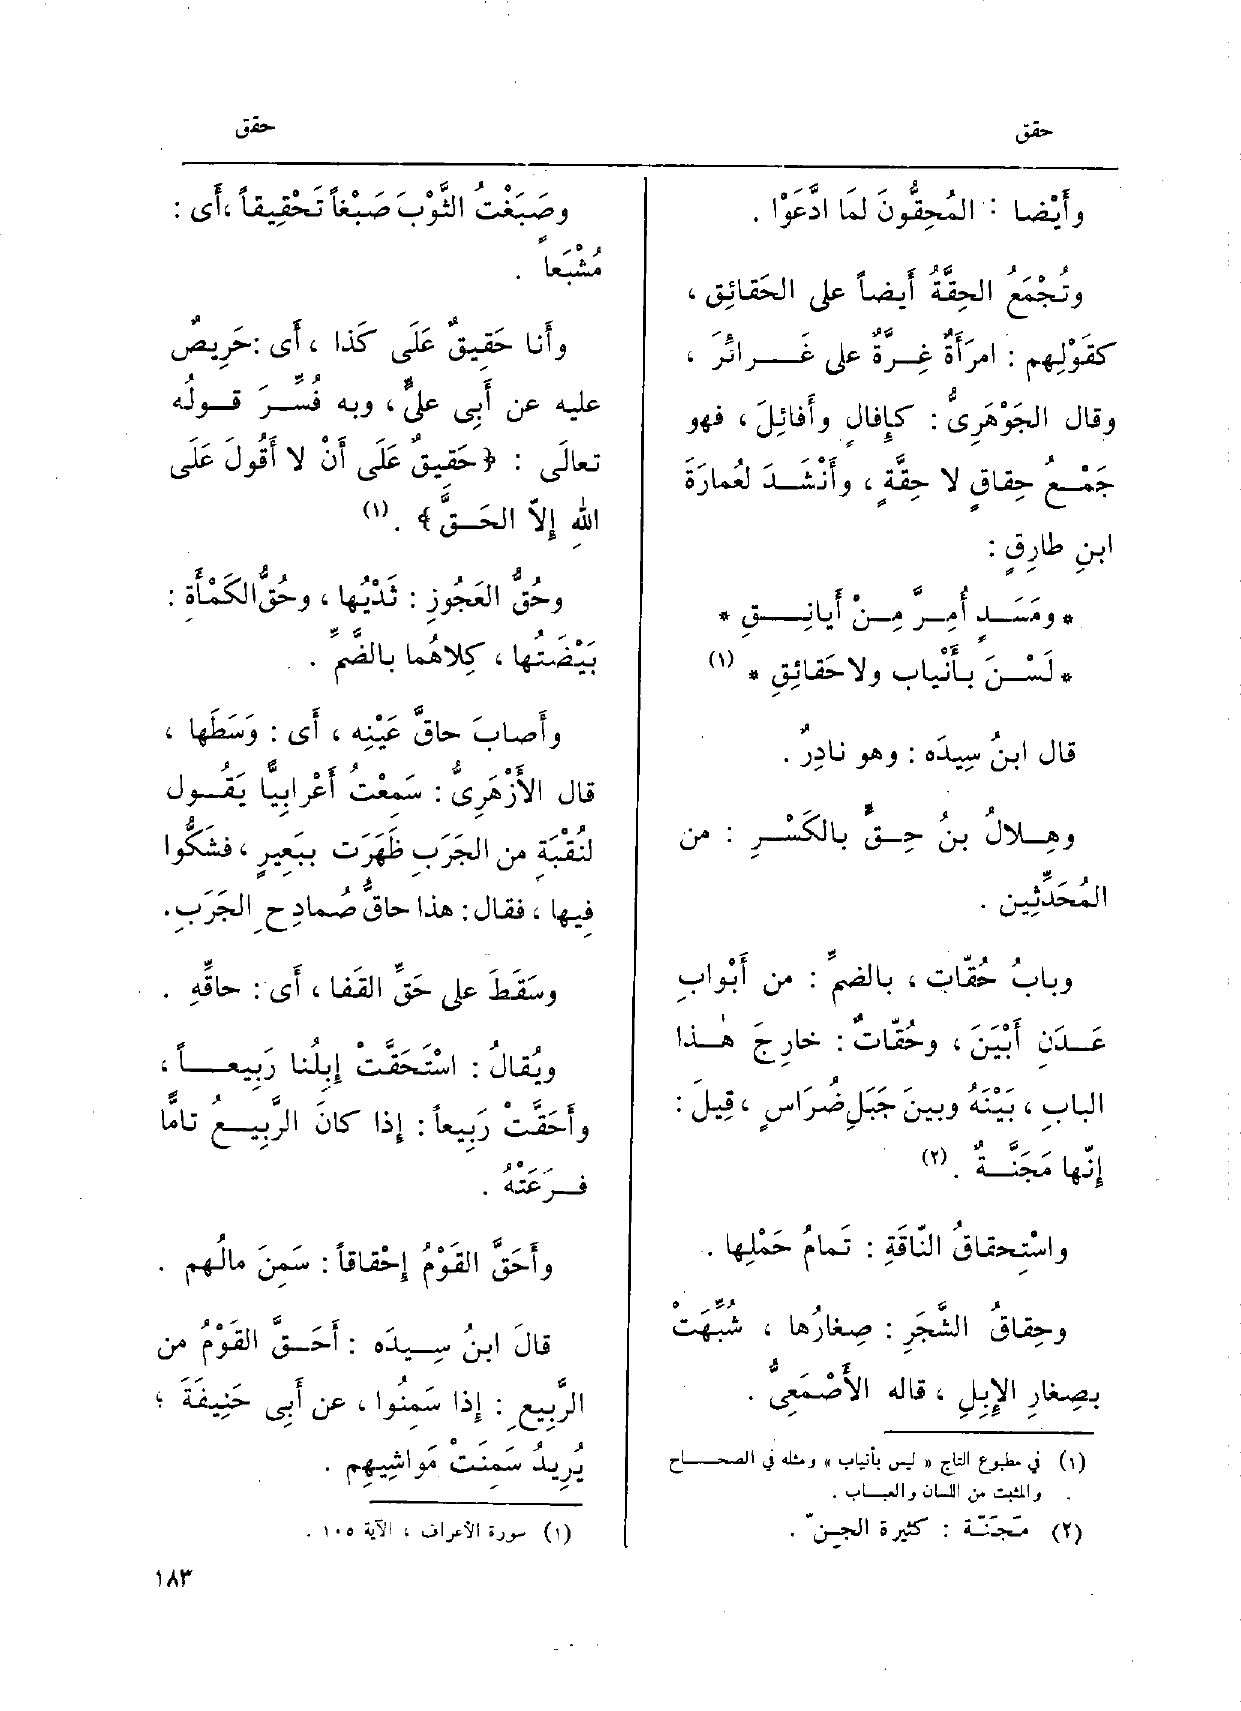 حقق
حقق
وأَيْضا : المُحِقُّونَ لمَا ادَّعَوْا .
وتُجْمَعُ الحِقَّةُ أَيضاً على الحَقائِقِ ،
كقَوْلِهم : امرَأَةٌ غِـرَّةٌ على غَــرائرَ ،
وقال الجَوْهَرِىُّ : كإِفالٍ وأَفائِلَ ، فهو
جَمْـعُ حِقاقٍ لا حِقَّةٍ ، وأَنْشَـدَ لعُمارَةَ
ابنِ طارِقٍ :
* ومَسَـدٍ أُمِـرَّ مِـنْ أَيانِــقِ *
* لَسْـنَ بـأَنْيابٍ ولا حَقائِقِ * (١)
قال ابنُ سِيدَه : وهو نادِرٌ .
وهِـلالُ بنُ حِـقٍّ بالكَسْـرِ : من
المُحَدِّثِين .
وبابُ حُقّات ، بالضمِّ : من أَبْوابِ
عَـدَنِ أَبْيَنَ ، وحُقّاتٌ : خارِجَ هـذا
البابِ ، بَيْنَهُ وبينَ جَبَلِ ضُرَاسٍ ، قِيلَ :
إِنّها مَجَنَّـةٌ . (٢)
واسْتِحقاقُ النّاقَةِ : تَمامُ حَمْلِها .
وحِقاقُ الشَّجَرِ : صِغارُها ، شُبِّهَتْ
بصِغارِ الإِبِلِ ، قاله الأَصْمَعِىُّ .
(١) في مطبوع التاج « ليس بأنياب » ومثله في الصحـــاح
والمثبت من اللسان والعبـاب .
(٢) مَجَنّة : كثيرة الجـنّ .
وصَبَغْتُ الثَّوْبَ صَبْغاً تَحْقِيقاً ،أَى :
مُشْبَعاً .
وأَنا حَقِيقٌ عَلَى كَذا ، أَى :حَرِيصٌ
عليه عن أَبِى عليٍّ ، وبه فُسِّـرَ قـولُه
تعالَى : ﴿ حَقِيقٌ عَلَى أَنْ لا أَقُولَ عَلَى
اللهِ إِلاَّ الحَـقَّ ﴾ . (١)
وحُقُّ العَجُوزِ : ثَدْيُها ، وحُقُّ الكَمْأَةِ :
بَيْضَتُها ، كِلاهُما بالضَّمِّ .
وأَصابَ حاقَّ عَيْنِه ، أَى : وَسَطَها ،
قال الأَزْهَرِىُّ : سَمِعْتُ أَعْرابِيًّا يَقُـول
لنُقْبَةٍ من الجَرَبِ ظَهَرَت ببَعِيرٍ ، فشَكُّوا
فِيها ، فقال : هذا حاقُّ صُمادِحِ الجَرَبِ.
وسَقَطَ على حَقِّ القَفا ، أَى : حاقِّهِ .
ويُقالُ : اسْتَحَقَّتْ إِبِلُنا رَبِيعــاً ،
وأَحَقَّتْ رَبِيعاً : إِذا كانَ الرَّبِيـعُ تامًّا
فـرَعَتْهُ .
وأَحَقَّ القَوْمُ إِحْقاقاً : سَمِنَ مالُهم .
قالَ ابنُ سِـيدَه : أَحَـقَّ القَوْمُ من
الرَّبِيعِ : إِذا سَمِنُوا ، عن أَبِى حَنِيفَةَ ؛
يُرِيدُ سَمِنَتْ مَواشِيهِم .
(١) سورة الأعراف ، الآية ١٠٥ .
١٨٣